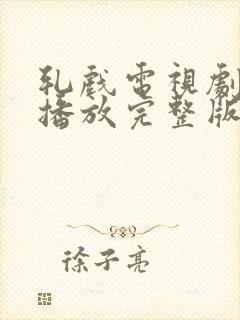 乳戲電視劇
播放完整版
徐子亮